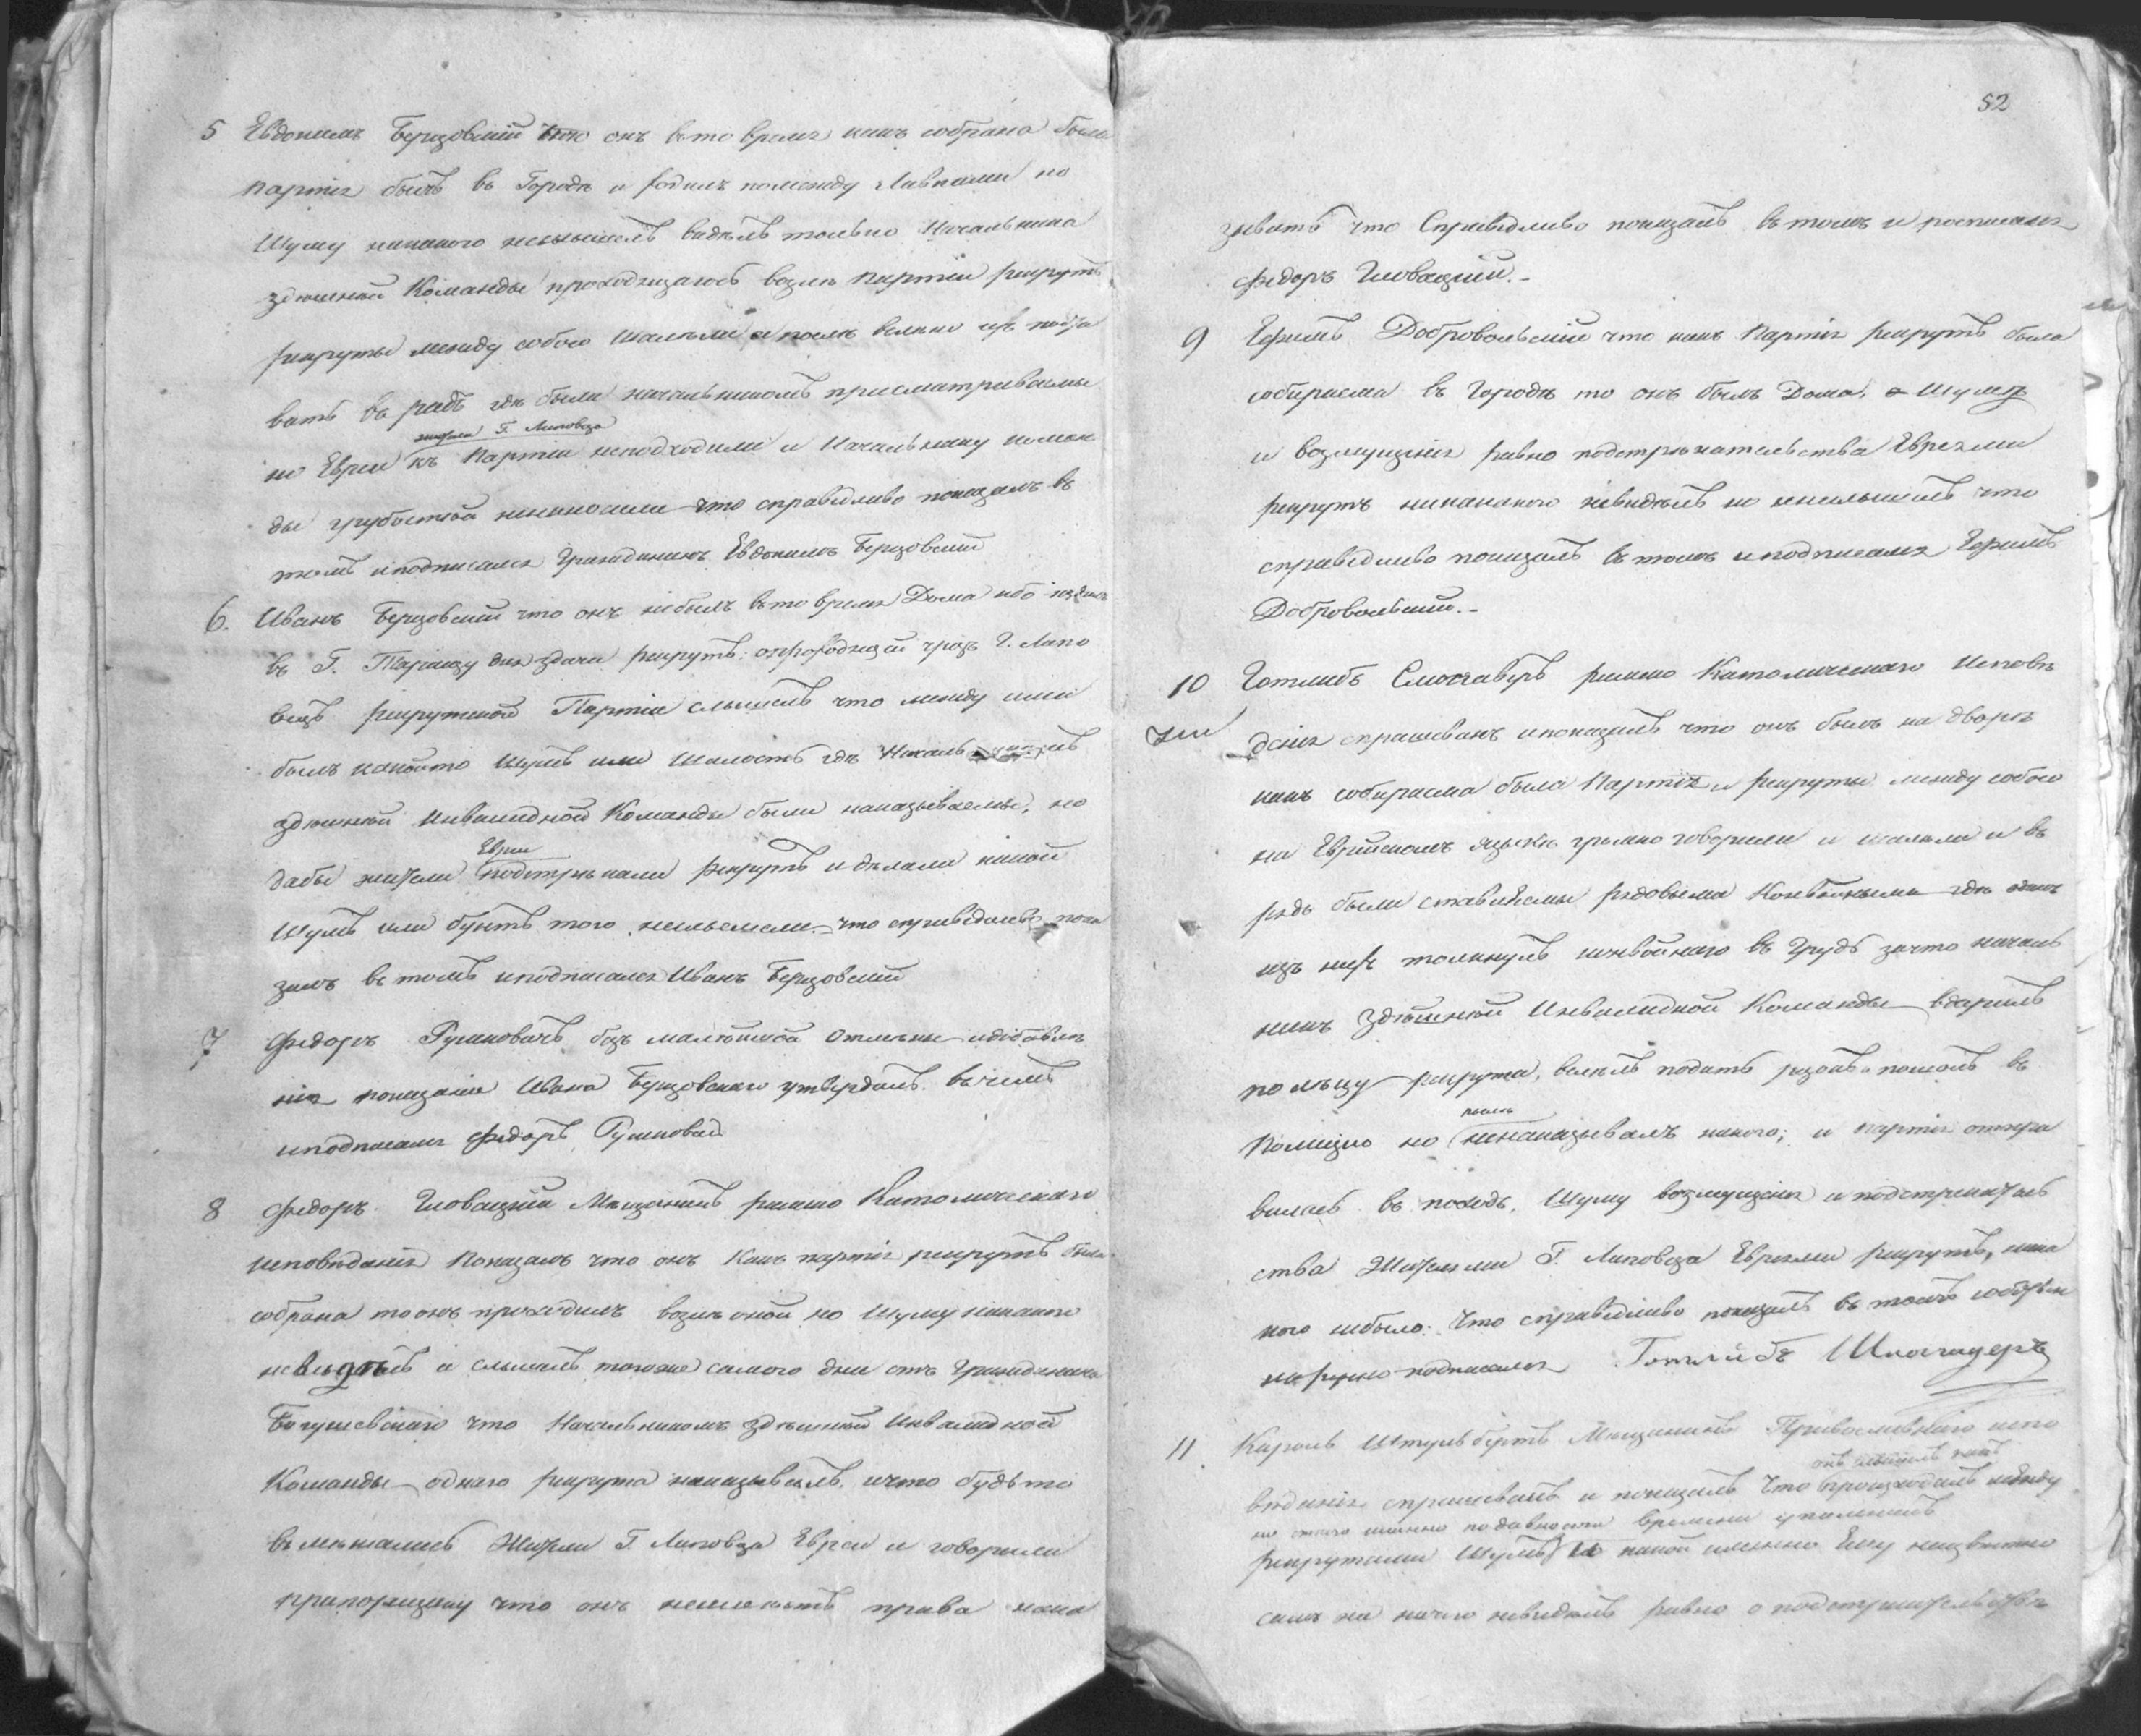 5 Евдокимъ Березовскій что онъ въ то время какъ собрана была
партія былъ въ Городѣ и ходилъ помежду Лавками но
Шуму никакого неслышелъ видѣлъ только Начальника
здешней Команды проходящагось возле партіи рекрутъ
рекруты между собою шалели а после велено ихъ
вать въ рядъ где были начальникомъ присматриваемы
жители Г. Липовца
но Евреи къ партіи неподходили и Начальнику коман
ды грубостей ненаносили что справедливо показалъ въ
томъ иподписался Гражданинъ Евдокимъ Березовскій
6. Иванъ Березовскій что онъ небылъ въто время Дома ибо
въ Г. Таращу для здачи рекрутъ; опроходящей чрезъ Г. Липо
вецъ рекрутской Партіи слышелъ что между ими
былъ какойто шумъ или шалость где
здешней Инвалидной Команды были наказываемы, но
Евреи
дабы жители подстрекали рекрутъ и делали какой
шумъ или бунтъ того неслыхали что справедливо пока
залъ въ томъ иподписался Иванъ Березовскій
7 Федоръ безъ малейшей отмены идобавле
нія показаніе Ивана Березовскаго утвердилъ. въ чемъ
иподписался Федоръ
8 Федоръ Гловацкій Мещанинъ римско Католическаго
исповеданія показалъ что онъ какъ партія рекрутъ была
собрана то онъ проходилъ возле оной но шуму никакого
невидѣлъ а слышалъ тогоже самого дня отъ Гражданина
Богушевскаго что Начальникомъ здешней Инвалидной
Команды одного рекрута наказывалъ. ичто будьто
въмешались Жители Г. Липовца Евреи и говорили
прапорщику что онъ неимеетъ права нака
52
зывать что Справедливо показалъ въ томъ и росписался
Федоръ Гловацкій.-
9 Ефимъ Добровольскій что какъ партія рекрутъ была
собираема въ Городѣ то онъ былъ Дома, о Шуме
и возмущенія равно подстрекательства Евреями
рекрутъ никакого невиделъ и неслышелъ что
справедливо показалъ въ томъ иподписался Ефимъ
Добровольскій.-
10 Готлибъ римско Католическаго Исповѣ
данія спрашеванъ ипоказалъ что онъ былъ на дворе
какъ собираема была Партія и рекруты между собою
на Еврейскомъ языкѣ громко говорили и шалели и въ
рядъ были ставлѣемы рядовыми Конвойными где одинъ
изъ нихъ толкнулъ конвойнаго въ Грудь зачто началь
никъ здѣшней Инвалидной Команды вдарилъ
по лицу рекрута, велелъ подать розокъ и пошолъ въ
после
Полицію но ненаказывалъ никого; и партія отпра
вилась въ походъ, Шуму возмущенія и подстрекатель
ства Жителями Г. Липовца Евреями рекрутъ, ника
кого небыло. Что справедливо показалъ въ томъ собствен
норучно подписался Готлибъ
11. Кароль Штульбертъ Мещанинъ Православнаго испо
онъ слышелъ какъ
веданія спрашеванъ и показалъ Что происходилъ между
но онаго именно подавности времени упомнилъ
рекрутами Шумъ какой именно Ему неизвестно
самъ же ничего невиделъ равно о подстрекательстве